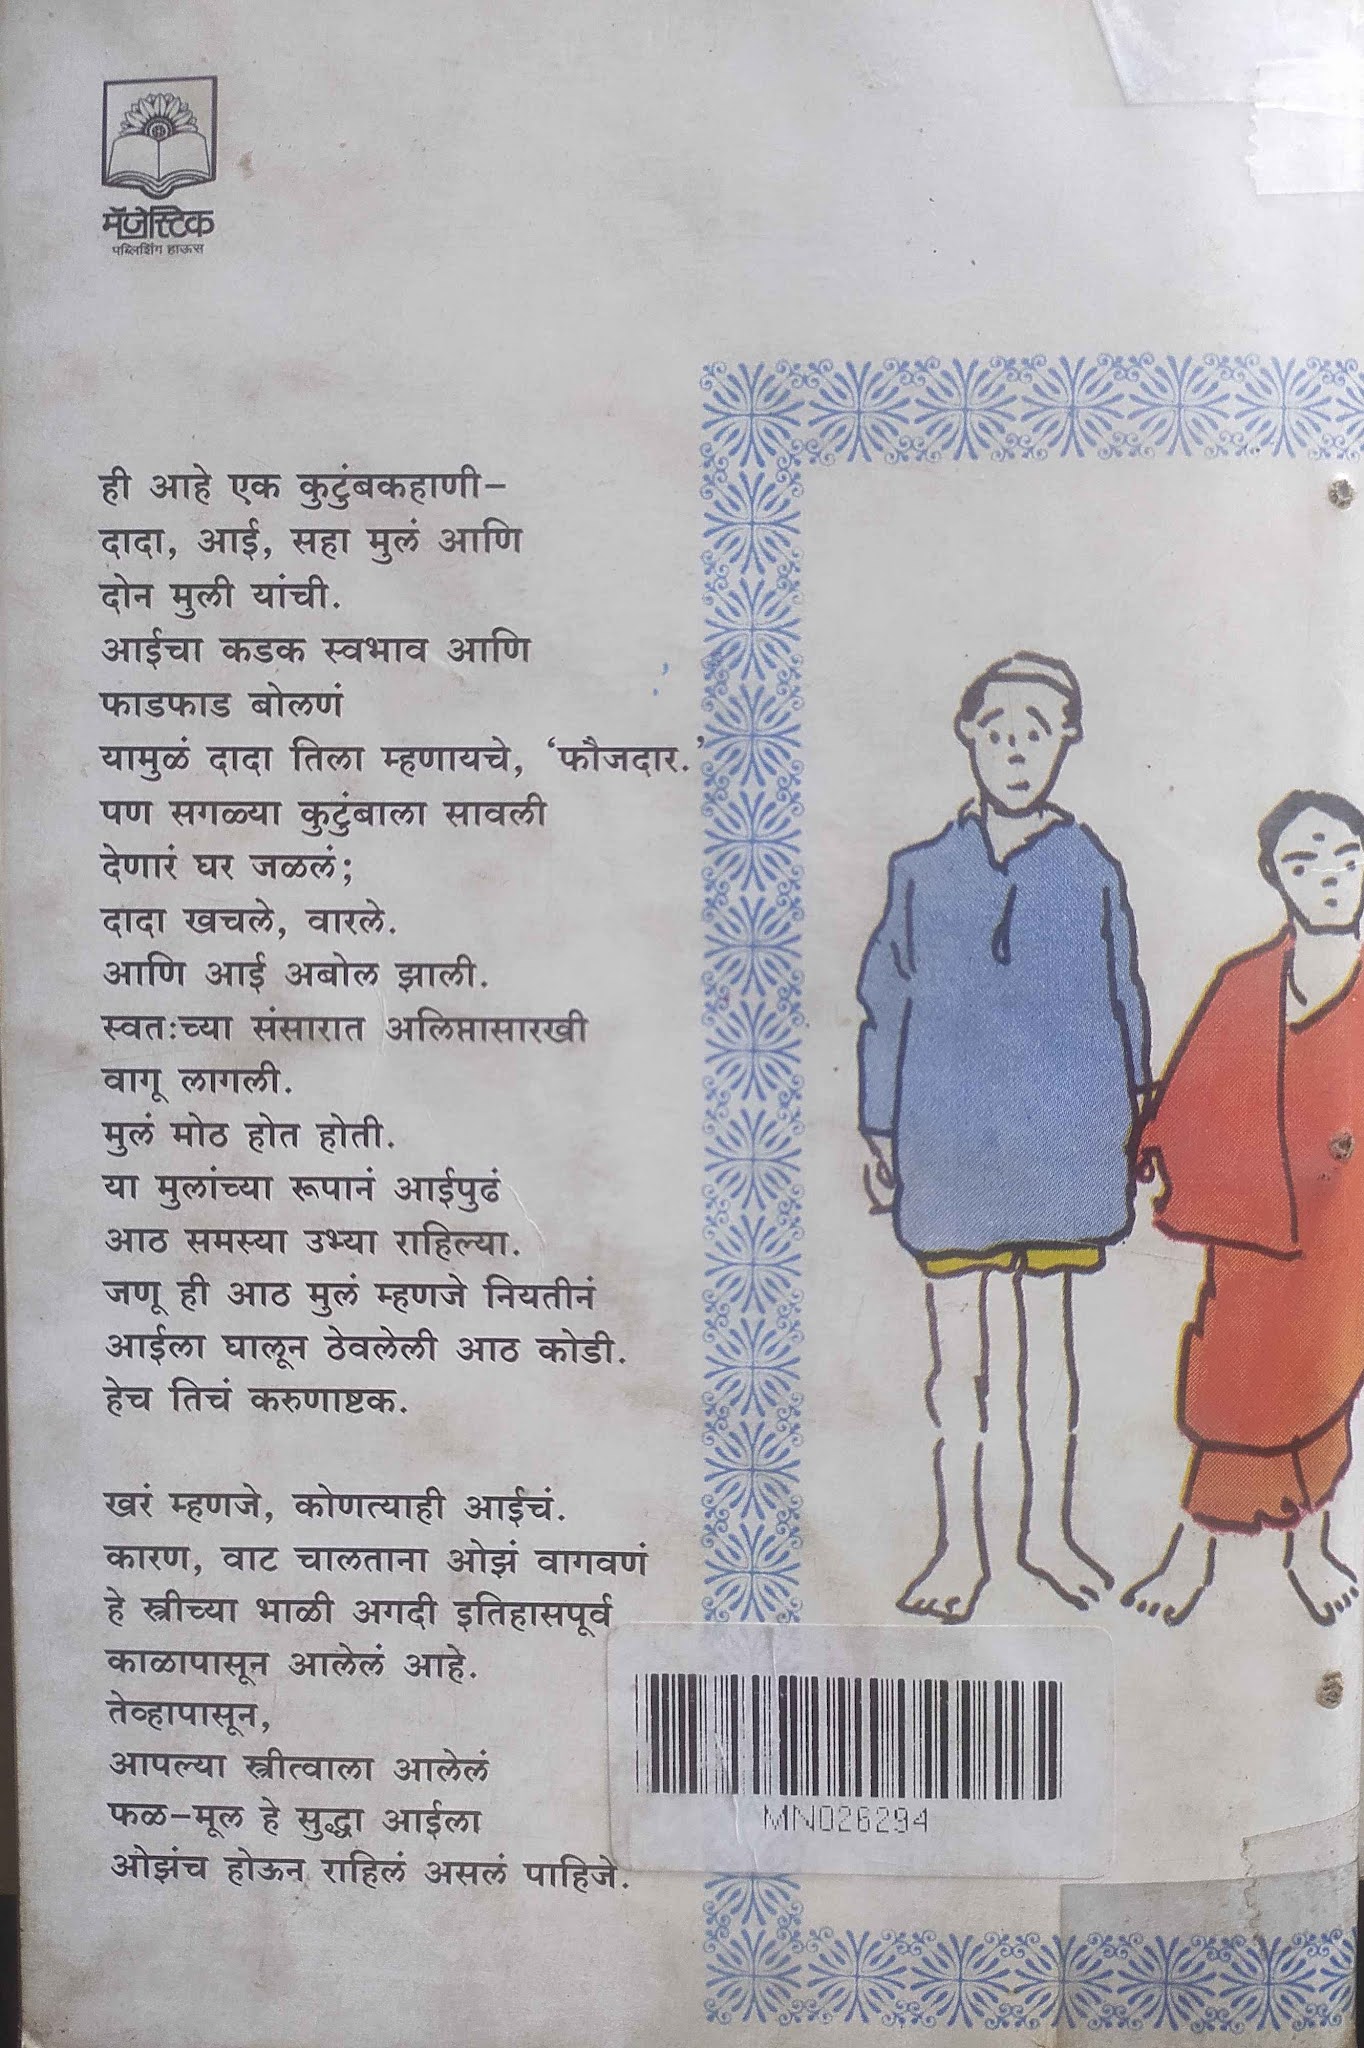 मॅजेस्टिक
पब्लिशिंग हाऊस
ही आहे एक कुटुंबकहाणी-
दादा, आई, सहा मुलं आणि
दोन मुली यांची.
आईचा कडक स्वभाव आणि
फाडफाड बोलणं
यामुळं दादा तिला म्हणायचे, ‘फौजदार.’
पण सगळ्या कुटुंबाला सावली
देणारं घर जळलं;
दादा खचले, वारले.
आणि आई अबोल झाली.
स्वतःच्या संसारात अलिप्तासारखी
वागू लागली.
मुलं मोठ होत होती.
या मुलांच्या रूपानं आईपुढं
आठ समस्या उभ्या राहिल्या.
जणू ही आठ मुलं म्हणजे नियतीनं
आईला घालून ठेवलेली आठ कोडी.
हेच तिचं करुणाष्टक.
खरं म्हणजे, कोणत्याही आईचं.
कारण, वाट चालताना ओझं वागवणं
हे स्त्रीच्या भाळी अगदी इतिहासपूर्व
काळापासून आलेलं आहे.
तेव्हापासून,
आपल्या स्त्रीत्वाला आलेलं
फळ-मूल हे सुद्धा आईला
ओझंच होऊन राहिलं असलं पाहिजे.
MN026294